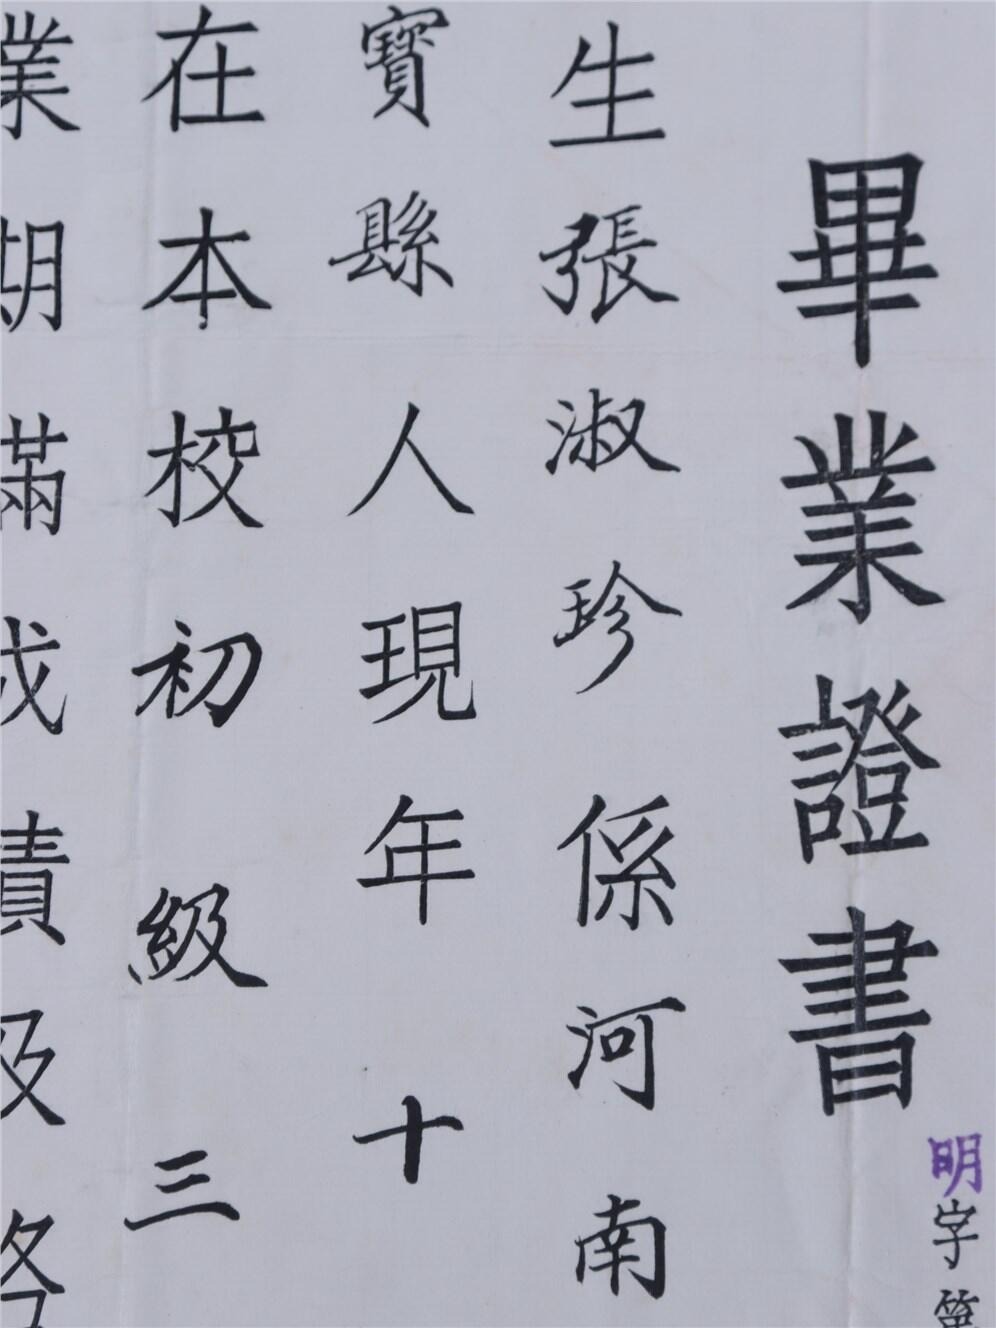 畢業證書
明字第
生張淑珍係河南
寳縣人現年十
在本校初級三
業期滿成績及格